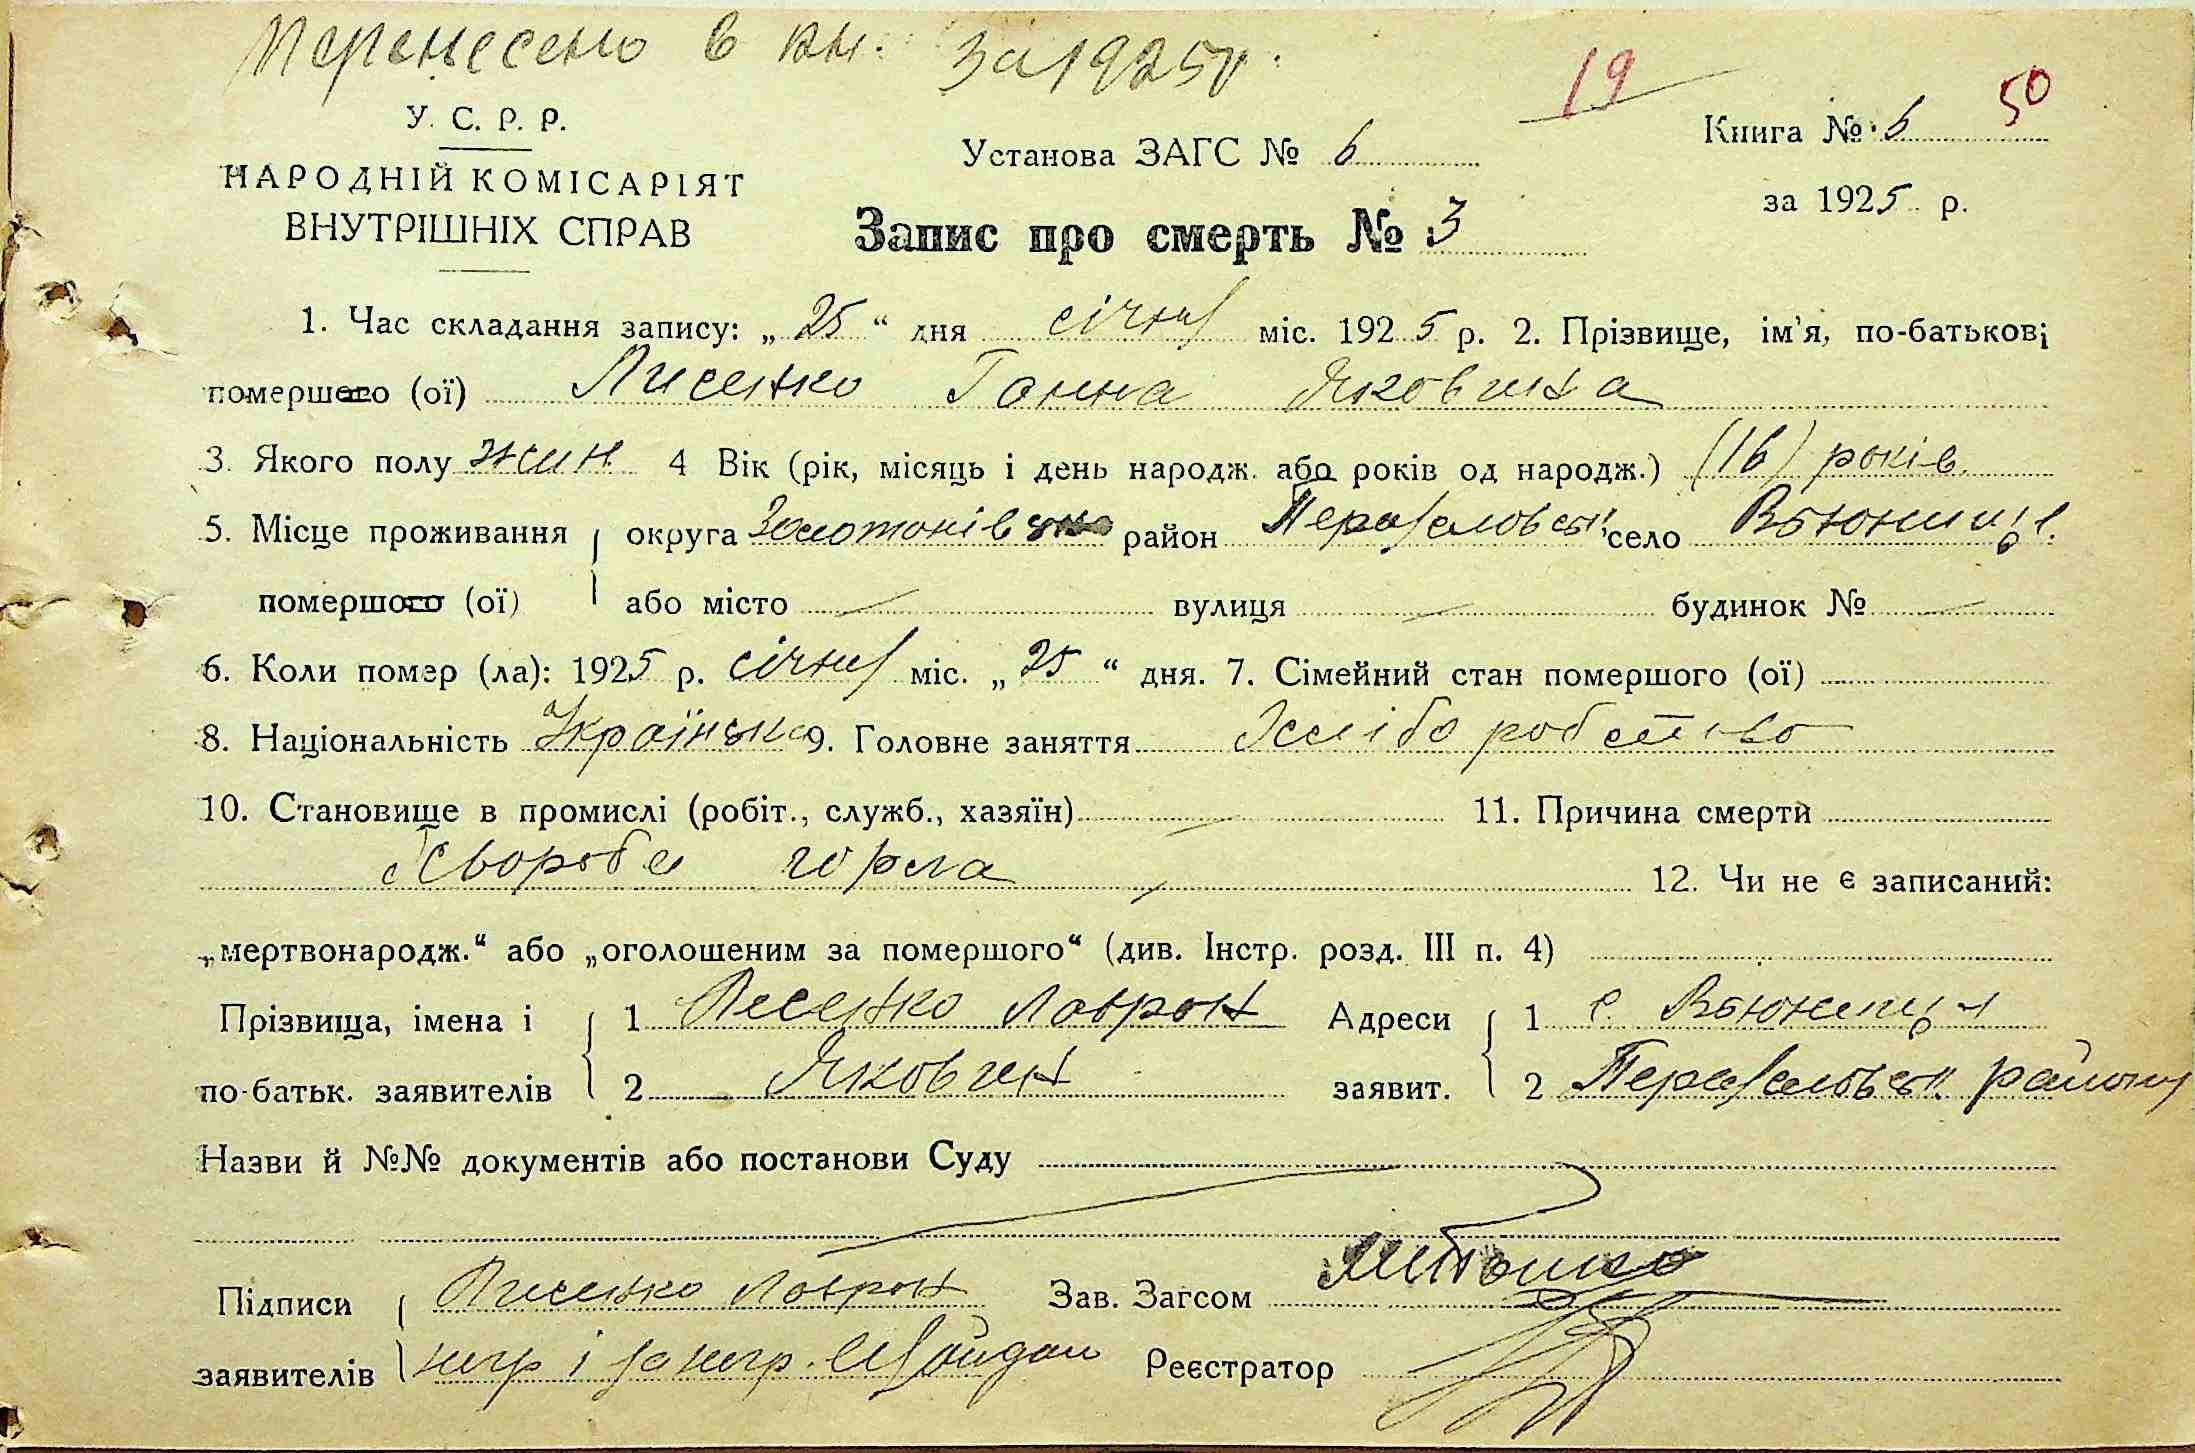 Перенесено в кн. за 1925 г.
19
50
У. С. Р. Р.
НАРОДНІЙ КОМІСАРІЯТ
ВНУТРІШНІХ СПРАВ
Установа ЗАГС № 6
Книга № 6
за 1925 р.
Запис про смерть № 3
1. Час складання запису: „25“ дня січня міс. 1925 р. 2. Прізвище, ім'я, по-батькові
помершего (ої) Лисенко Ганна Яковивна
3. Якого полу жин 4 Вік (рік, місяць і день народж. або років од народж.) (16) років.
5. Місце проживання округа Золотонівська район Переяславськ село Вьюнищі.
помершого (ої) або місто — вулиця — будинок № —
6. Коли помер (ла): 1925 р. січня міс. „25“ дня. 7. Сімейний стан помершого (ої)
8. Національність Українка 9. Головне заняття Хліборобство
10. Становище в промислі (робіт., служб., хазяїн) — 11. Причина смерти
Хвороба горла 12. Чи не є записаний:
„мертвонародж.“ або „оголошеним за помершого“ (див. Інстр. розд. III п. 4)
Прізвища, імена і 1 Лисенко Лаврон Адреси 1 с Вьюнищя
по-батьк. заявителів 2 Якович заявит. 2 Переяславськ. району
Назви й №№ документів або постанови Суду
Підписи Лисенко Лаврон Зав. Загсом
заявителів Реєстратор